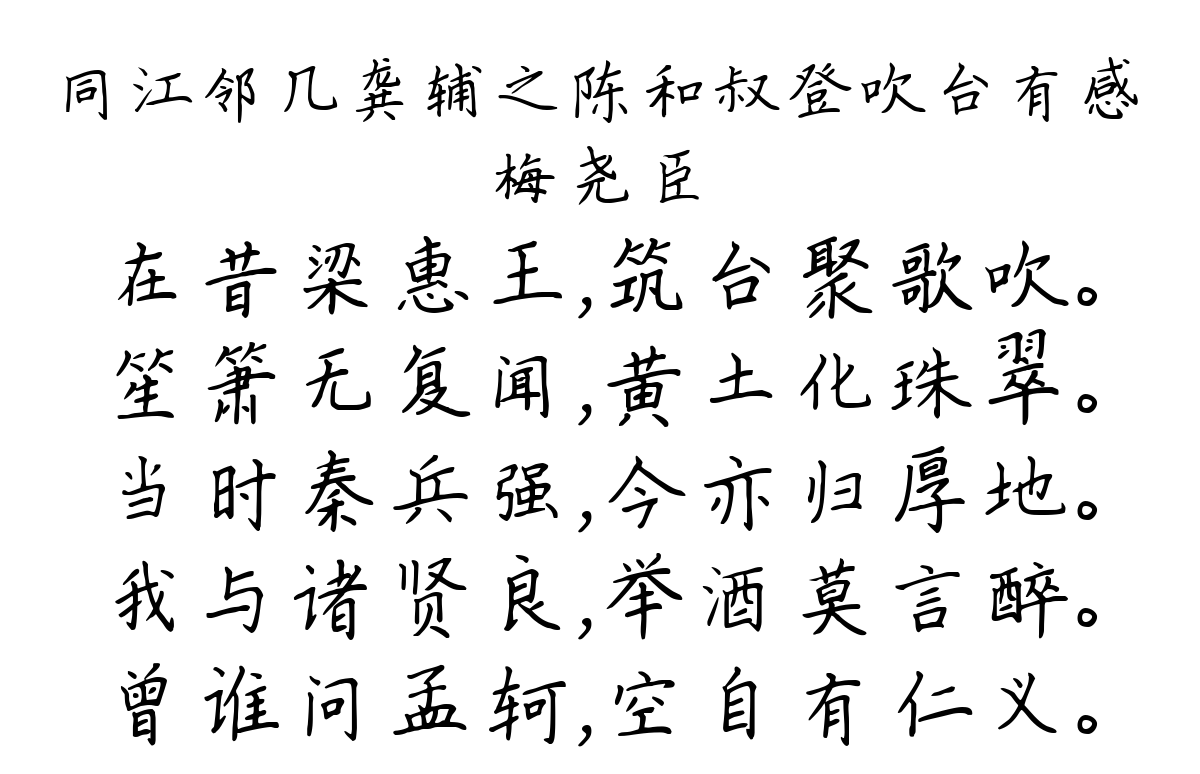 同江邻几龚辅之陈和叔登吹台有感
梅尧臣
在昔梁惠王,筑台聚歌吹。
笙箫无复闻,黄土化珠翠。
当时秦兵强,今亦归厚地。
我与诸贤良,举酒莫言醉。
曾谁问孟轲,空自有仁义。